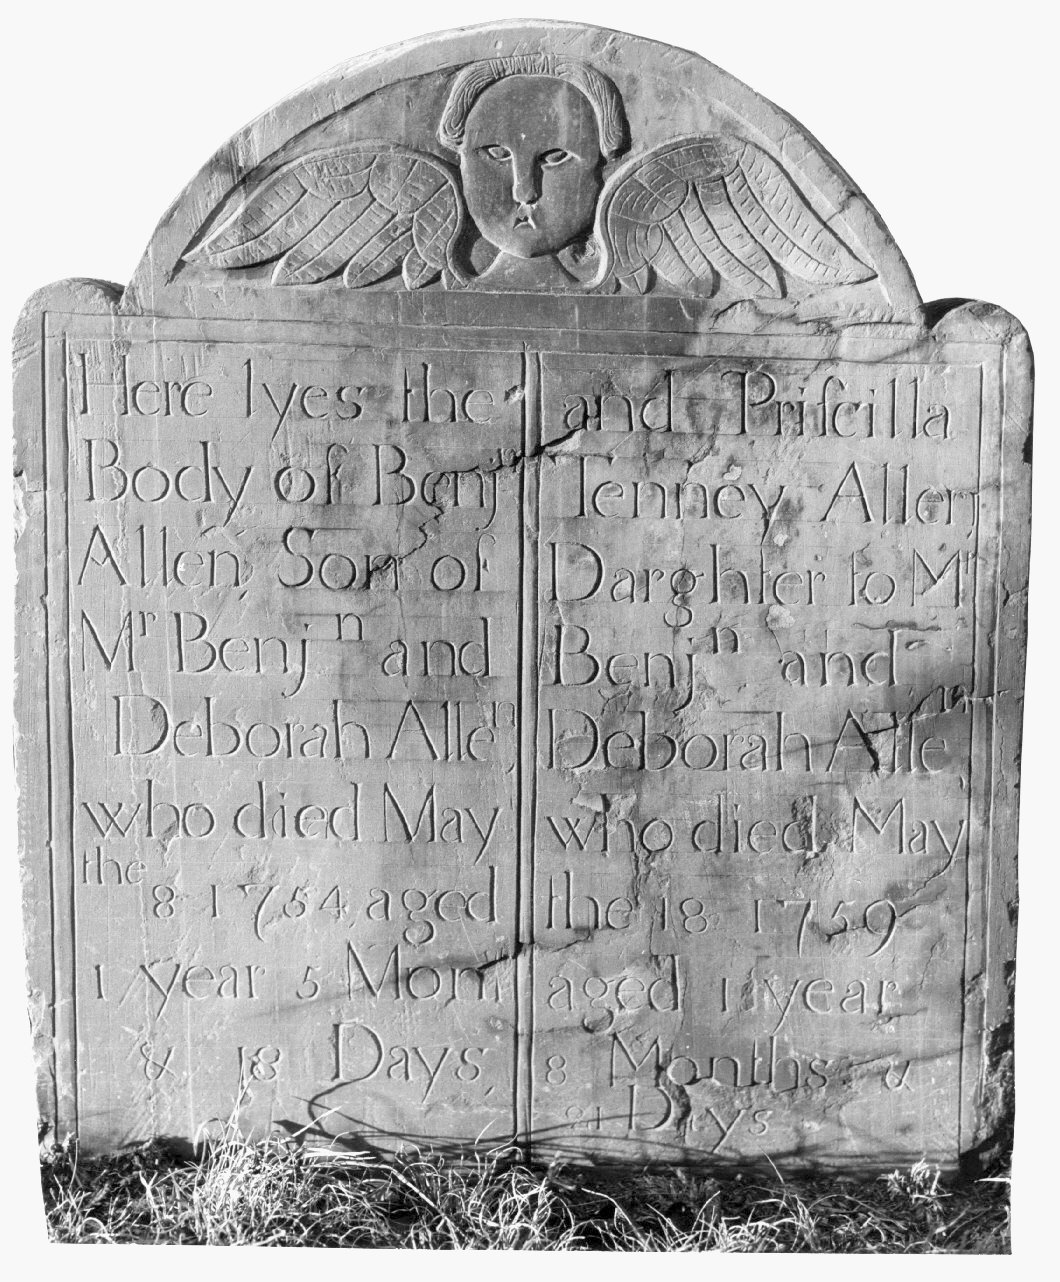 Here lyes the
Body of Benjn
Allen Son of
Mr Benjn and
Deborah Allen
who died May
the 8 1754 aged
1 year 5 Mon
& 18 Days
and Priſcilla
Tenney Allen
Darghter to Mr
Benjn and
Deborah Allen
who died May
the 18 1759
aged 1 year
8 Months &
21 Days